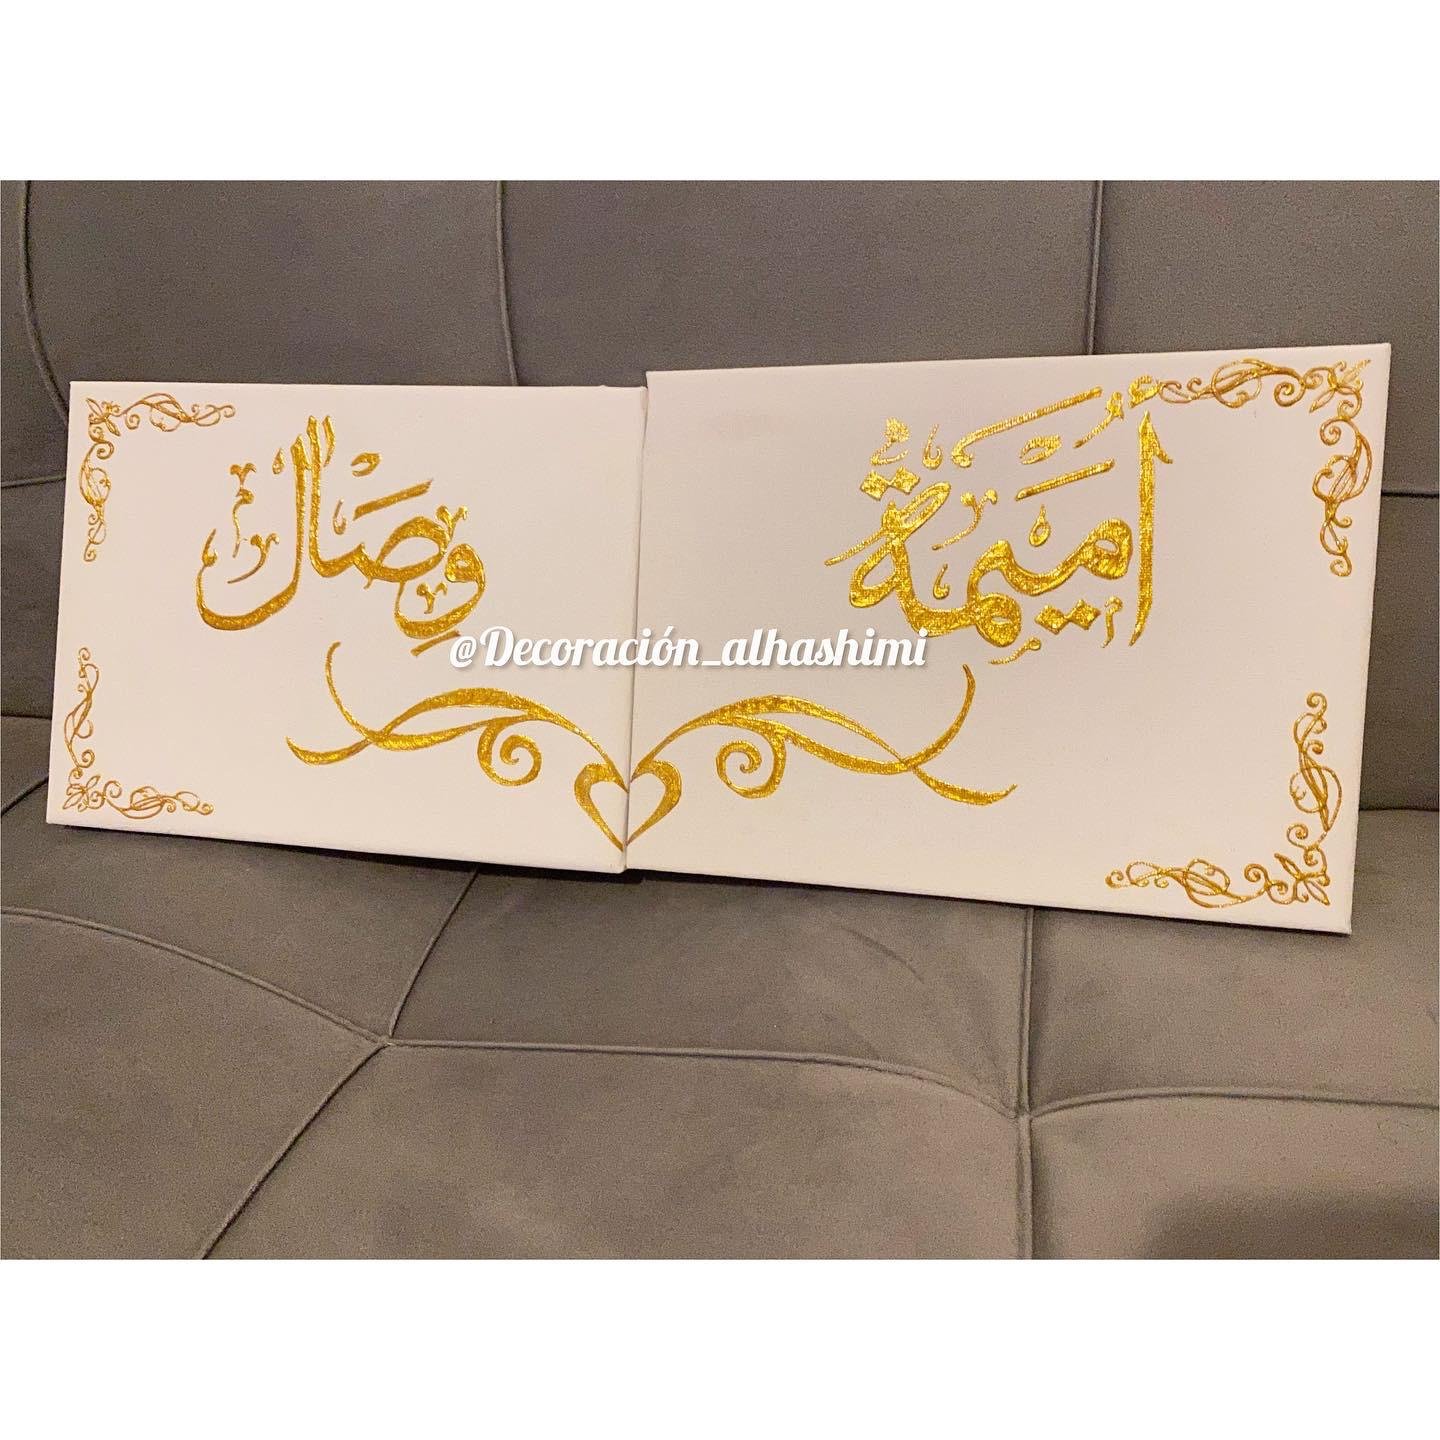 أُمَيْمَة
وِصَال
@Decoración_alhashimi